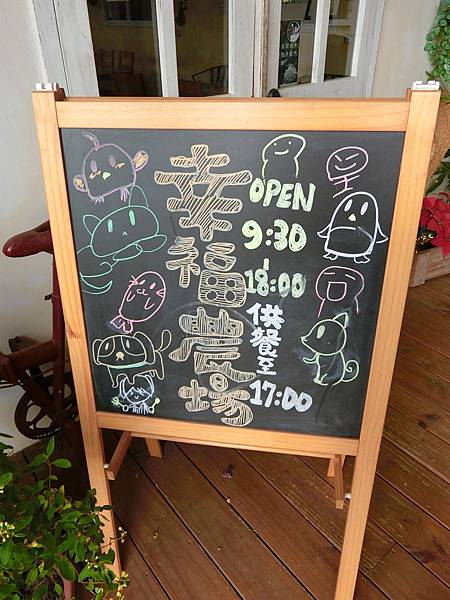 幸福農場
OPEN
9:30
|
18:00
供餐至
17:00